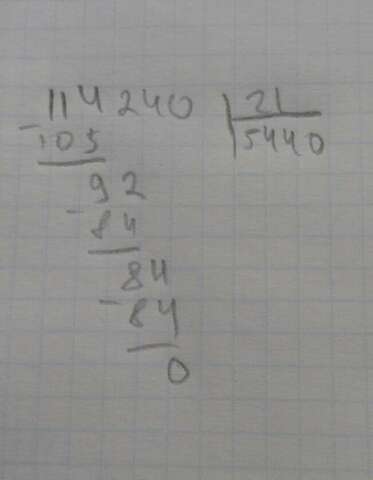 114240 21
- 105 5440
92
- 84
84
- 84
0